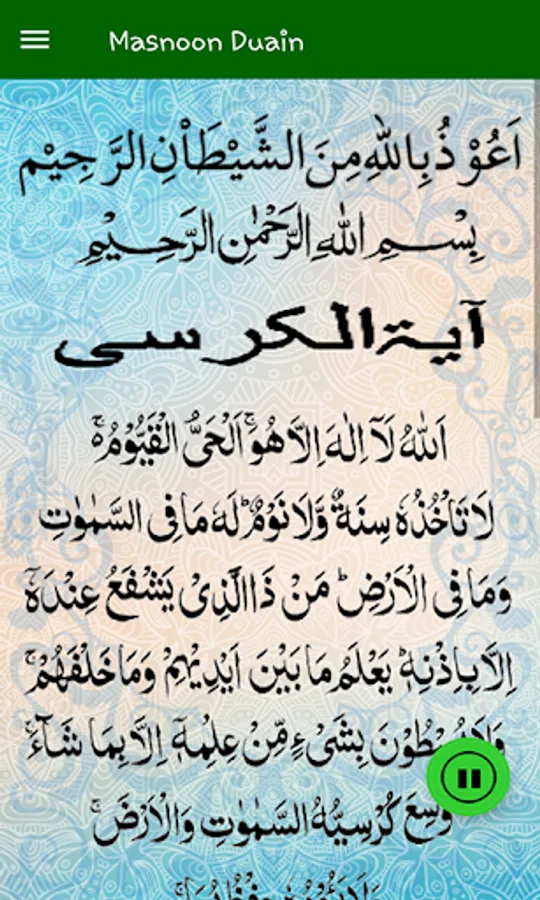 Masnoon Duain
اَعُوْذُ بِاللّٰهِ مِنَ الشَّيْطَاْنِ الرَّجِيْم
بِسْــمِ اللّٰهِ الرَّحْمٰنِ الرَّحِـيْـمِ
آية الكرسى
اَللّٰهُ لَاۤ اِلٰهَ اِلَّا هُوَۚ اَلْحَیُّ الْقَيُّوْمُ ەۚ
لَا تَاْخُذُهٗ سِنَةٌ وَّلَا نَوْمٌؕ لَهٗ مَا فِى السَّمٰوٰتِ
وَمَا فِى الْاَرْضِؕ مَنْ ذَا الَّذِىْ يَشْفَعُ عِنْدَهٗۤ
اِلَّا بِاِذْنِهٖؕ يَعْلَمُ مَا بَيْنَ اَيْدِيْهِمْ وَمَا خَلْفَهُمْۚ
وَلَا يُحِيْطُوْنَ بِشَىْءٍ مِّنْ عِلْمِهٖۤ اِلَّا بِمَا شَآءَۚ
وَسِعَ كُرْسِيُّهُ السَّمٰوٰتِ وَالْاَرْضَۚ